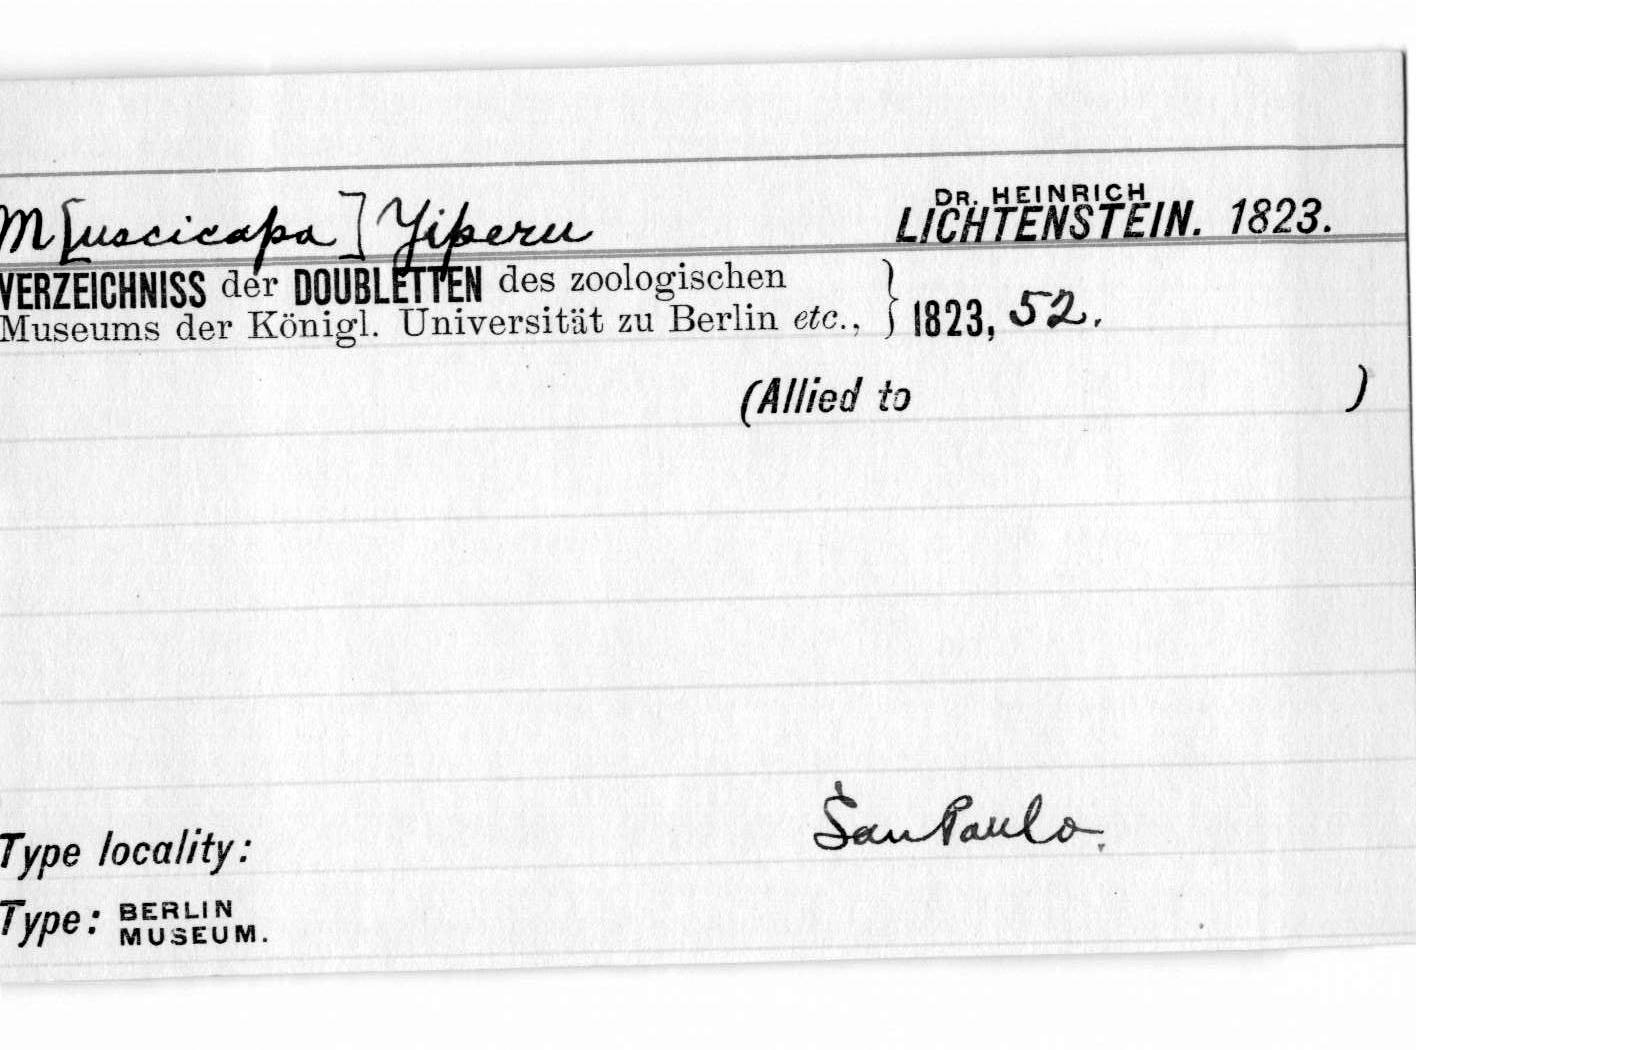 M[uscicapa] Yiperu DR. HEINRICH LICHTENSTEIN. 1823.
VERZEICHNISS der DOUBLETTEN des zoologischen
Museums der Königl. Universität zu Berlin etc., } 1823, 52.
(Allied to )
San Paulo.
Type locality:
Type: BERLIN MUSEUM.